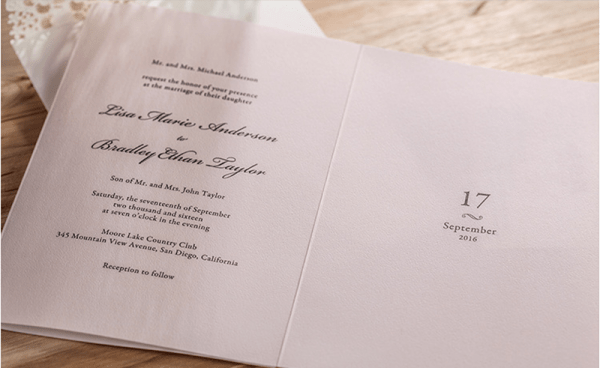 Mr. and Mrs. Michael Anderson
request the honor of your presence
at the marriage of their daughter
Lisa Marie Anderson
to
Bradley Ethan Taylor
Son of Mr. and Mrs. John Taylor
Saturday, the seventeenth of September
two thousand and sixteen
at seven o'clock in the evening
Moore Lake Country Club
345 Mountain View Avenue, San Diego, California
Reception to follow
17
September
2016